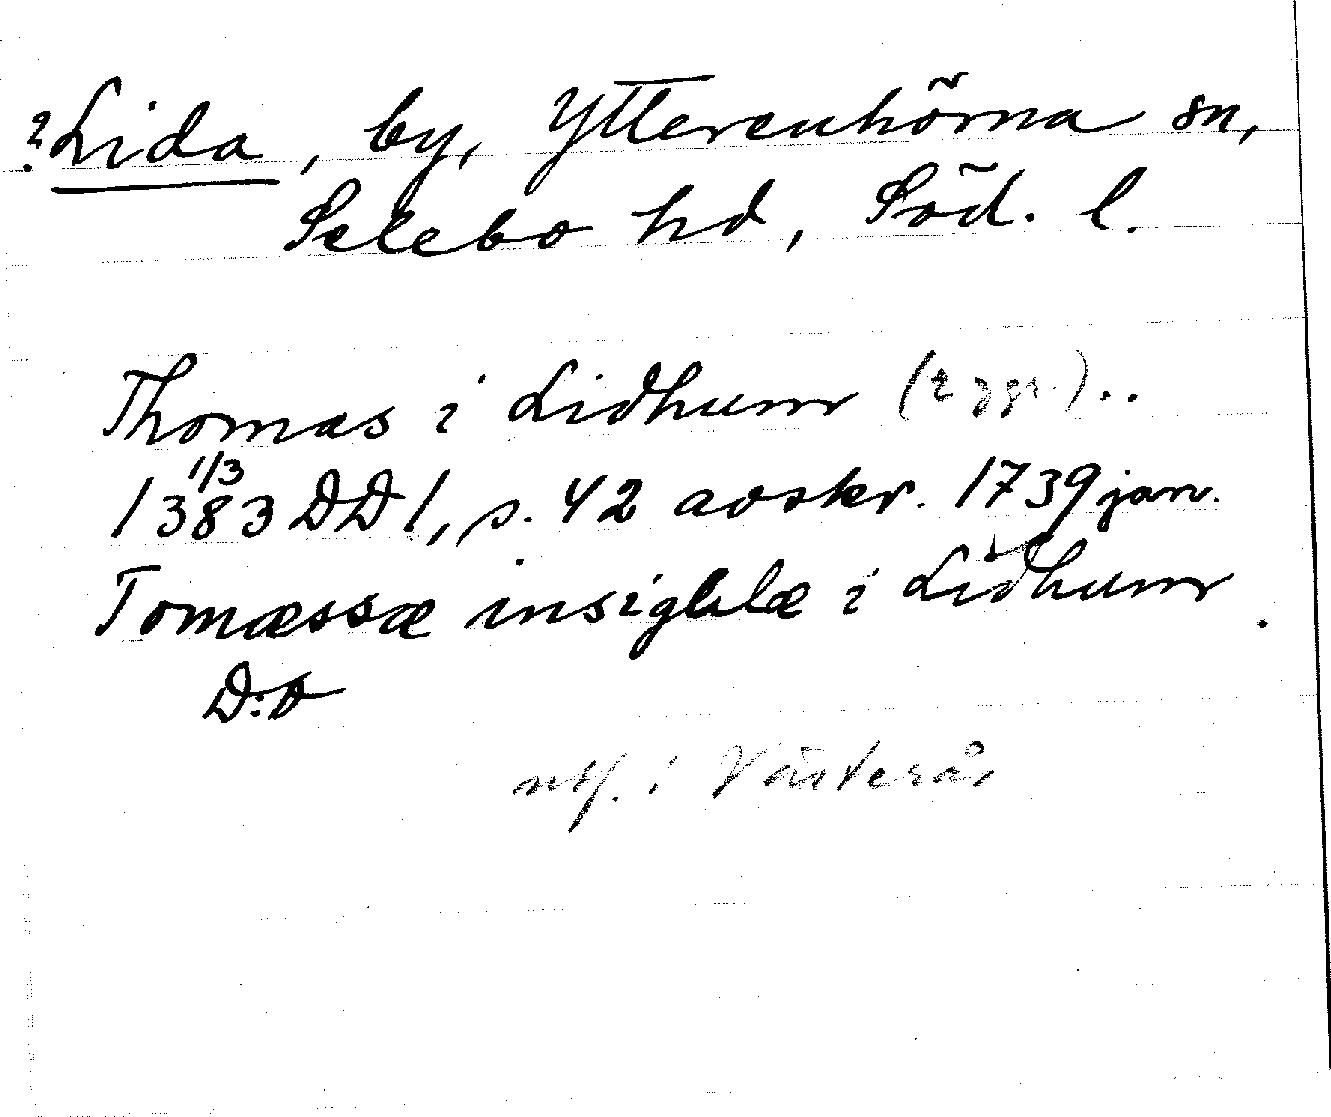 ? Lida, by, Ytterenhörna sn,
Selebo hd, Söd. l.
Thomas i Lidhum (2 ggr.)..
1/3
1383 DD 1, s. 42 avskr. 1739 jan.
Tomæssæ insighlæ i Lidhum.
D:o
utf. i Västerås